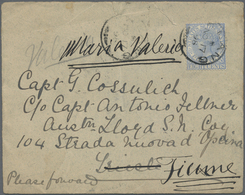 Maria Valerie
Capt G. Cossulich
C/o Capt Antonio Fellner
Austn Lloyd S.N. Co/
104 Strada nuova d'Opcina
Fiume
Please forward